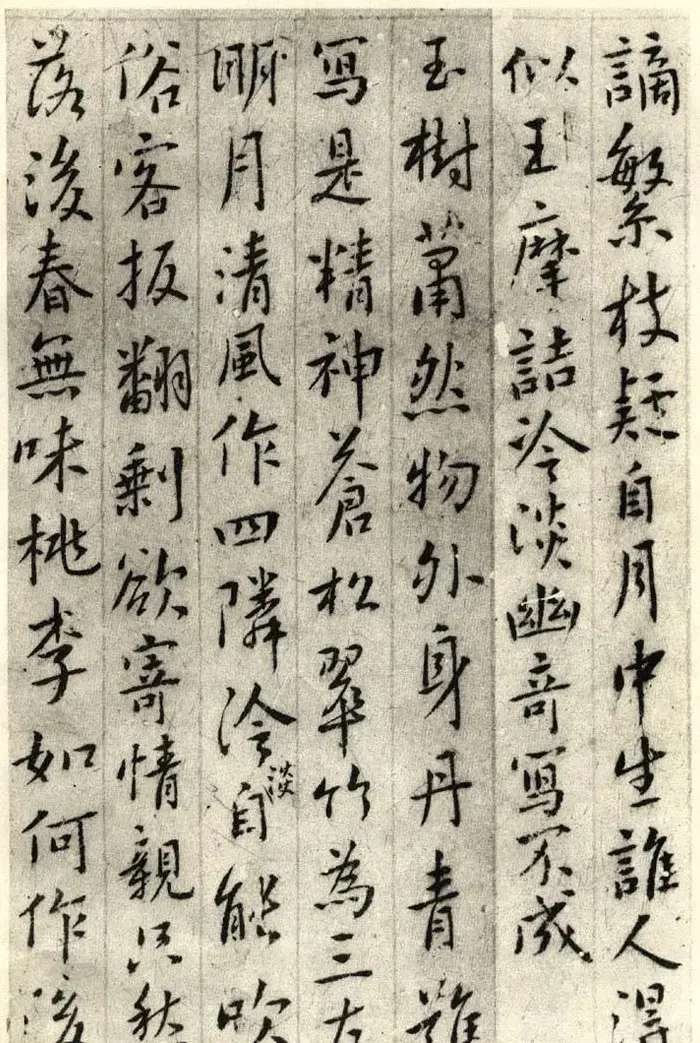 謫繁枝疑自月中生誰人得
似王摩詰冷淡幽奇寫不成
玉樹蕭然物外身丹青難
寫是精神蒼松翠竹為三
明月清風作四隣冷淡自能吹
俗客扳翻剩欲寄情親只
落後春無味桃李如何作後